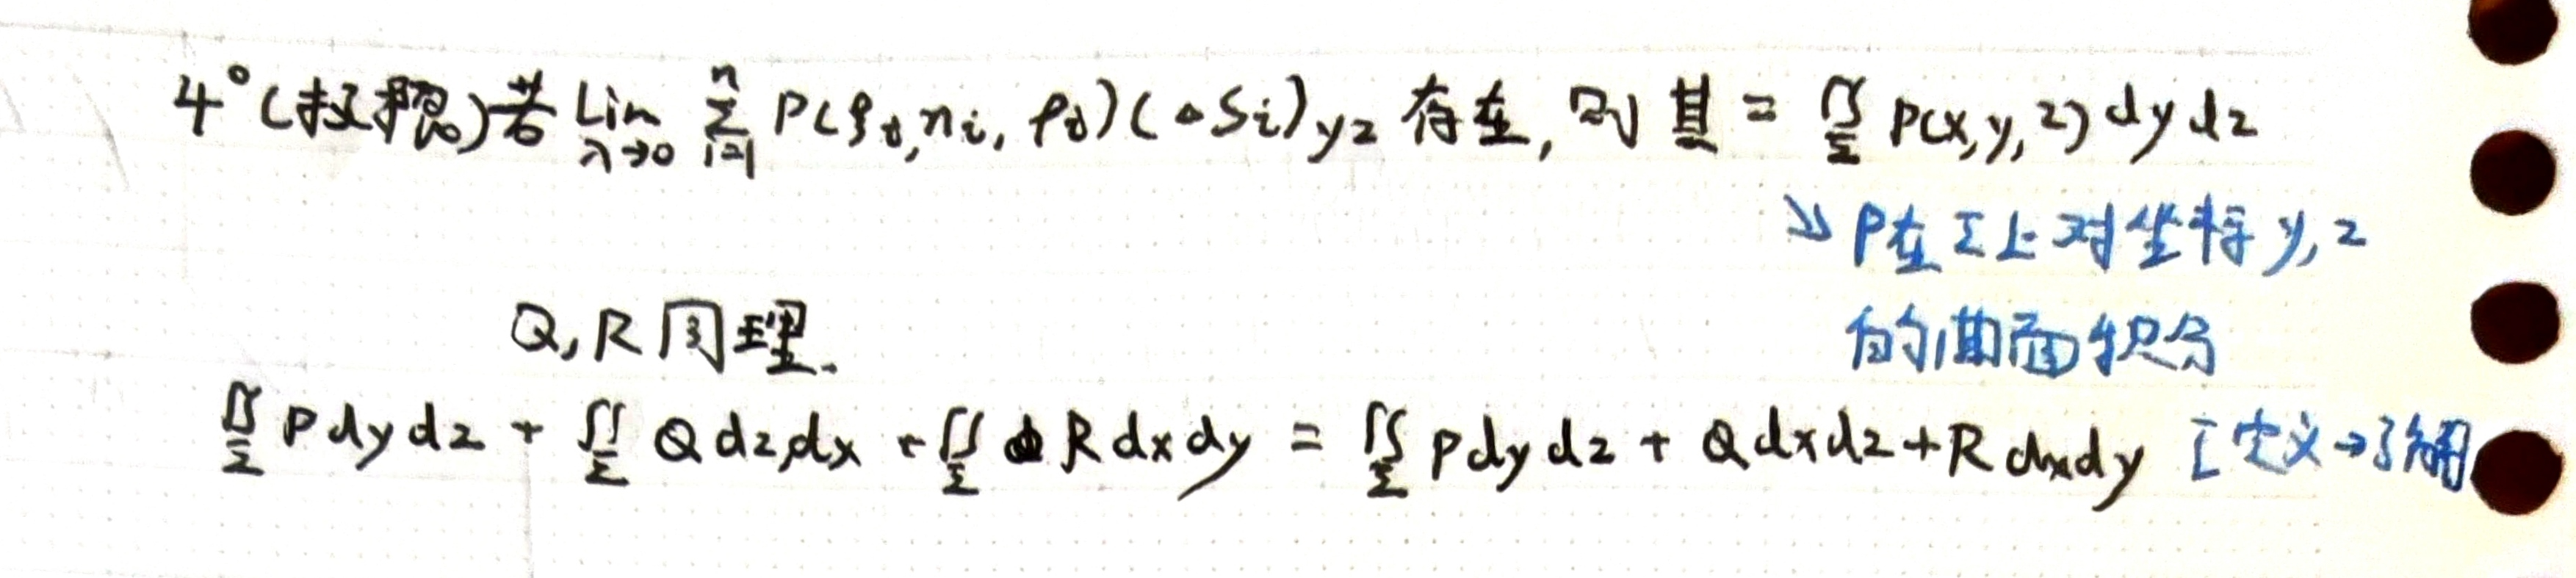 4°(极限)若 Lim λ→0 Σ i=1 n P(ξi, ηi, ρi)(ΔSi)yz 存在, 则其 = ∬Σ P(x,y,z) dy dz
↘ P在Σ上对坐标 y, z
的曲面积分
Q, R 同理.
∬Σ P dy dz + ∬Σ Q dz dx + ∬Σ R dx dy = ∬Σ P dy dz + Q dx dz + R dx dy [定义→了解